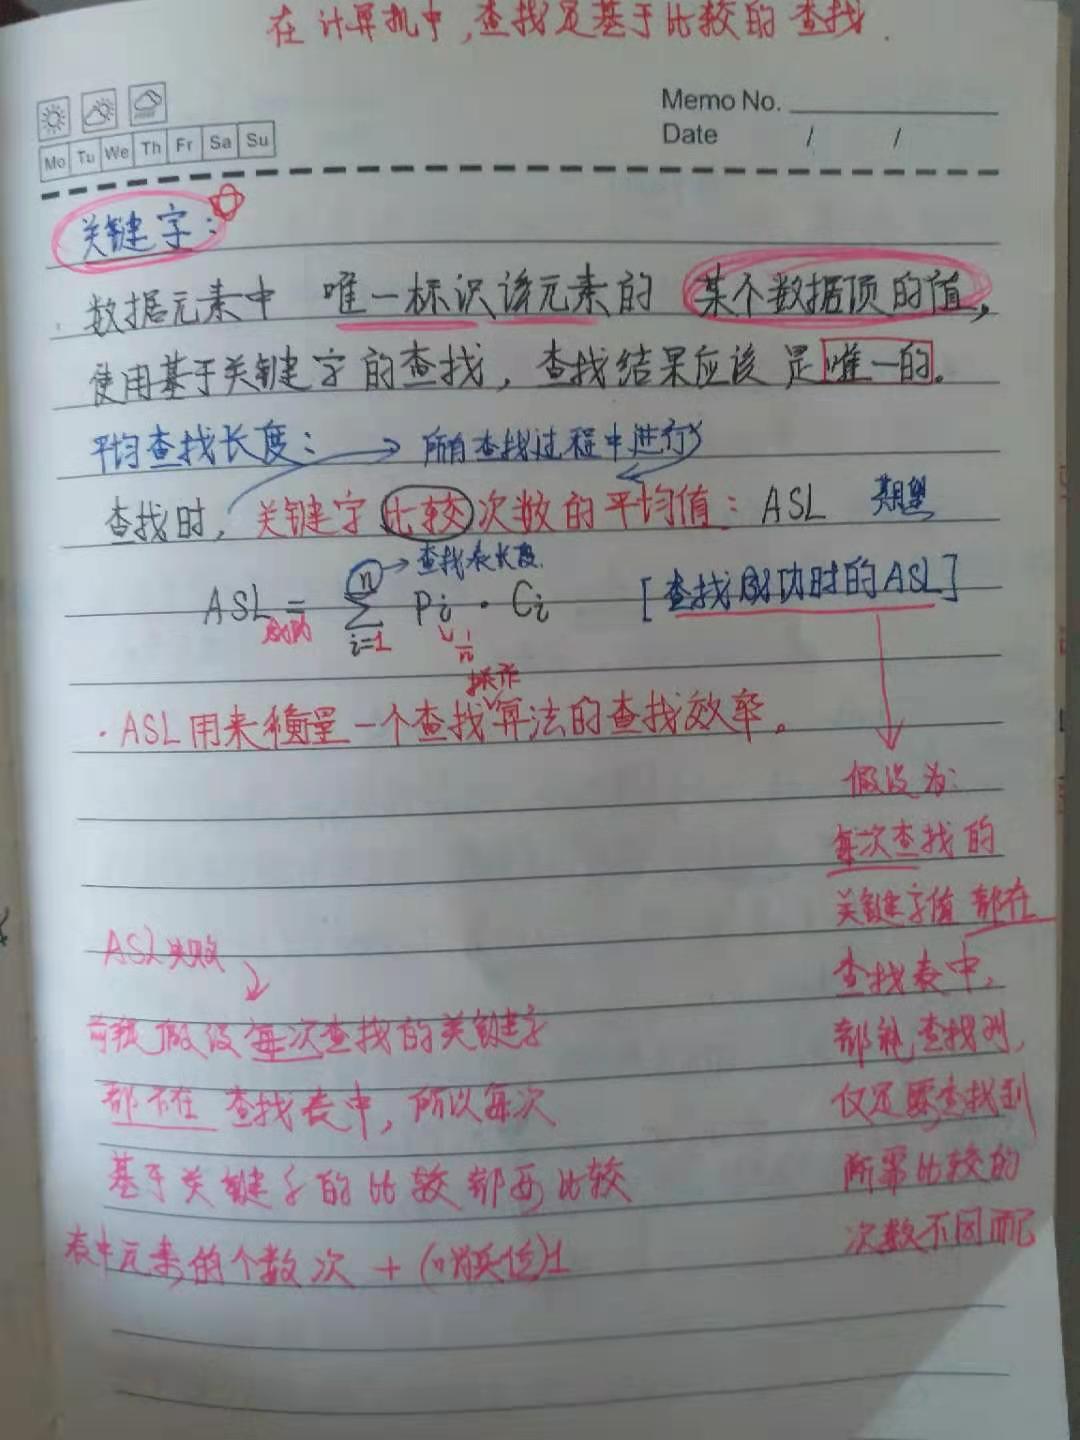 在计算机中,查找是基于比较的查找.
Memo No.
Date / /
Mo Tu We Th Fr Sa Su
关键字:
数据元素中 唯一标识该元素的 某个数据项的值,
使用基于关键字的查找,查找结果应该是唯一的.
平均查找长度: → 所有查找过程中进行
查找时,关键字比较次数的平均值: ASL 期望
n → 查找表长度.
ASL成功 = Σ Pi · Ci [查找成功时的ASL]
i=1 1/n
操作
· ASL用来衡量一个查找算法的查找效率。
假设为:
每次查找的
关键字值都在
查找表中,
都能查找到,
仅是要查找到
所需比较的
次数不同而已
ASL失败
假设每次查找的关键字
都不在查找表中,所以每次
基于关键字的比较都要比较
表中元素的个数次 + (哨兵位)1